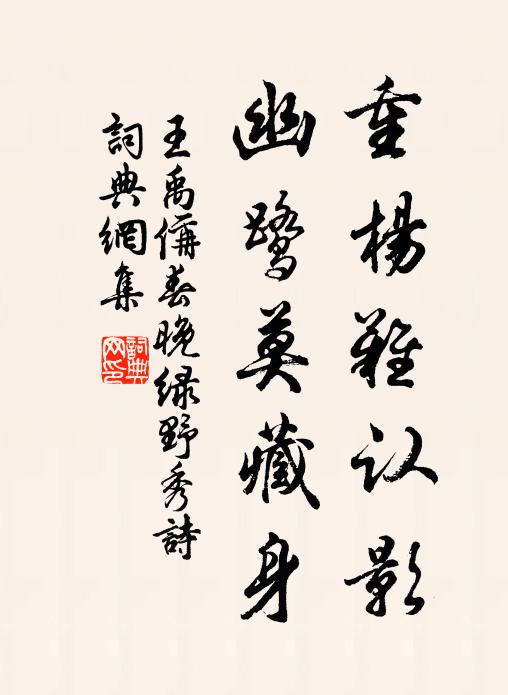 垂楊難认影
幽鷺莫藏身
王禹偁春晚绿野秀詩
詞典網集
詞典
网印